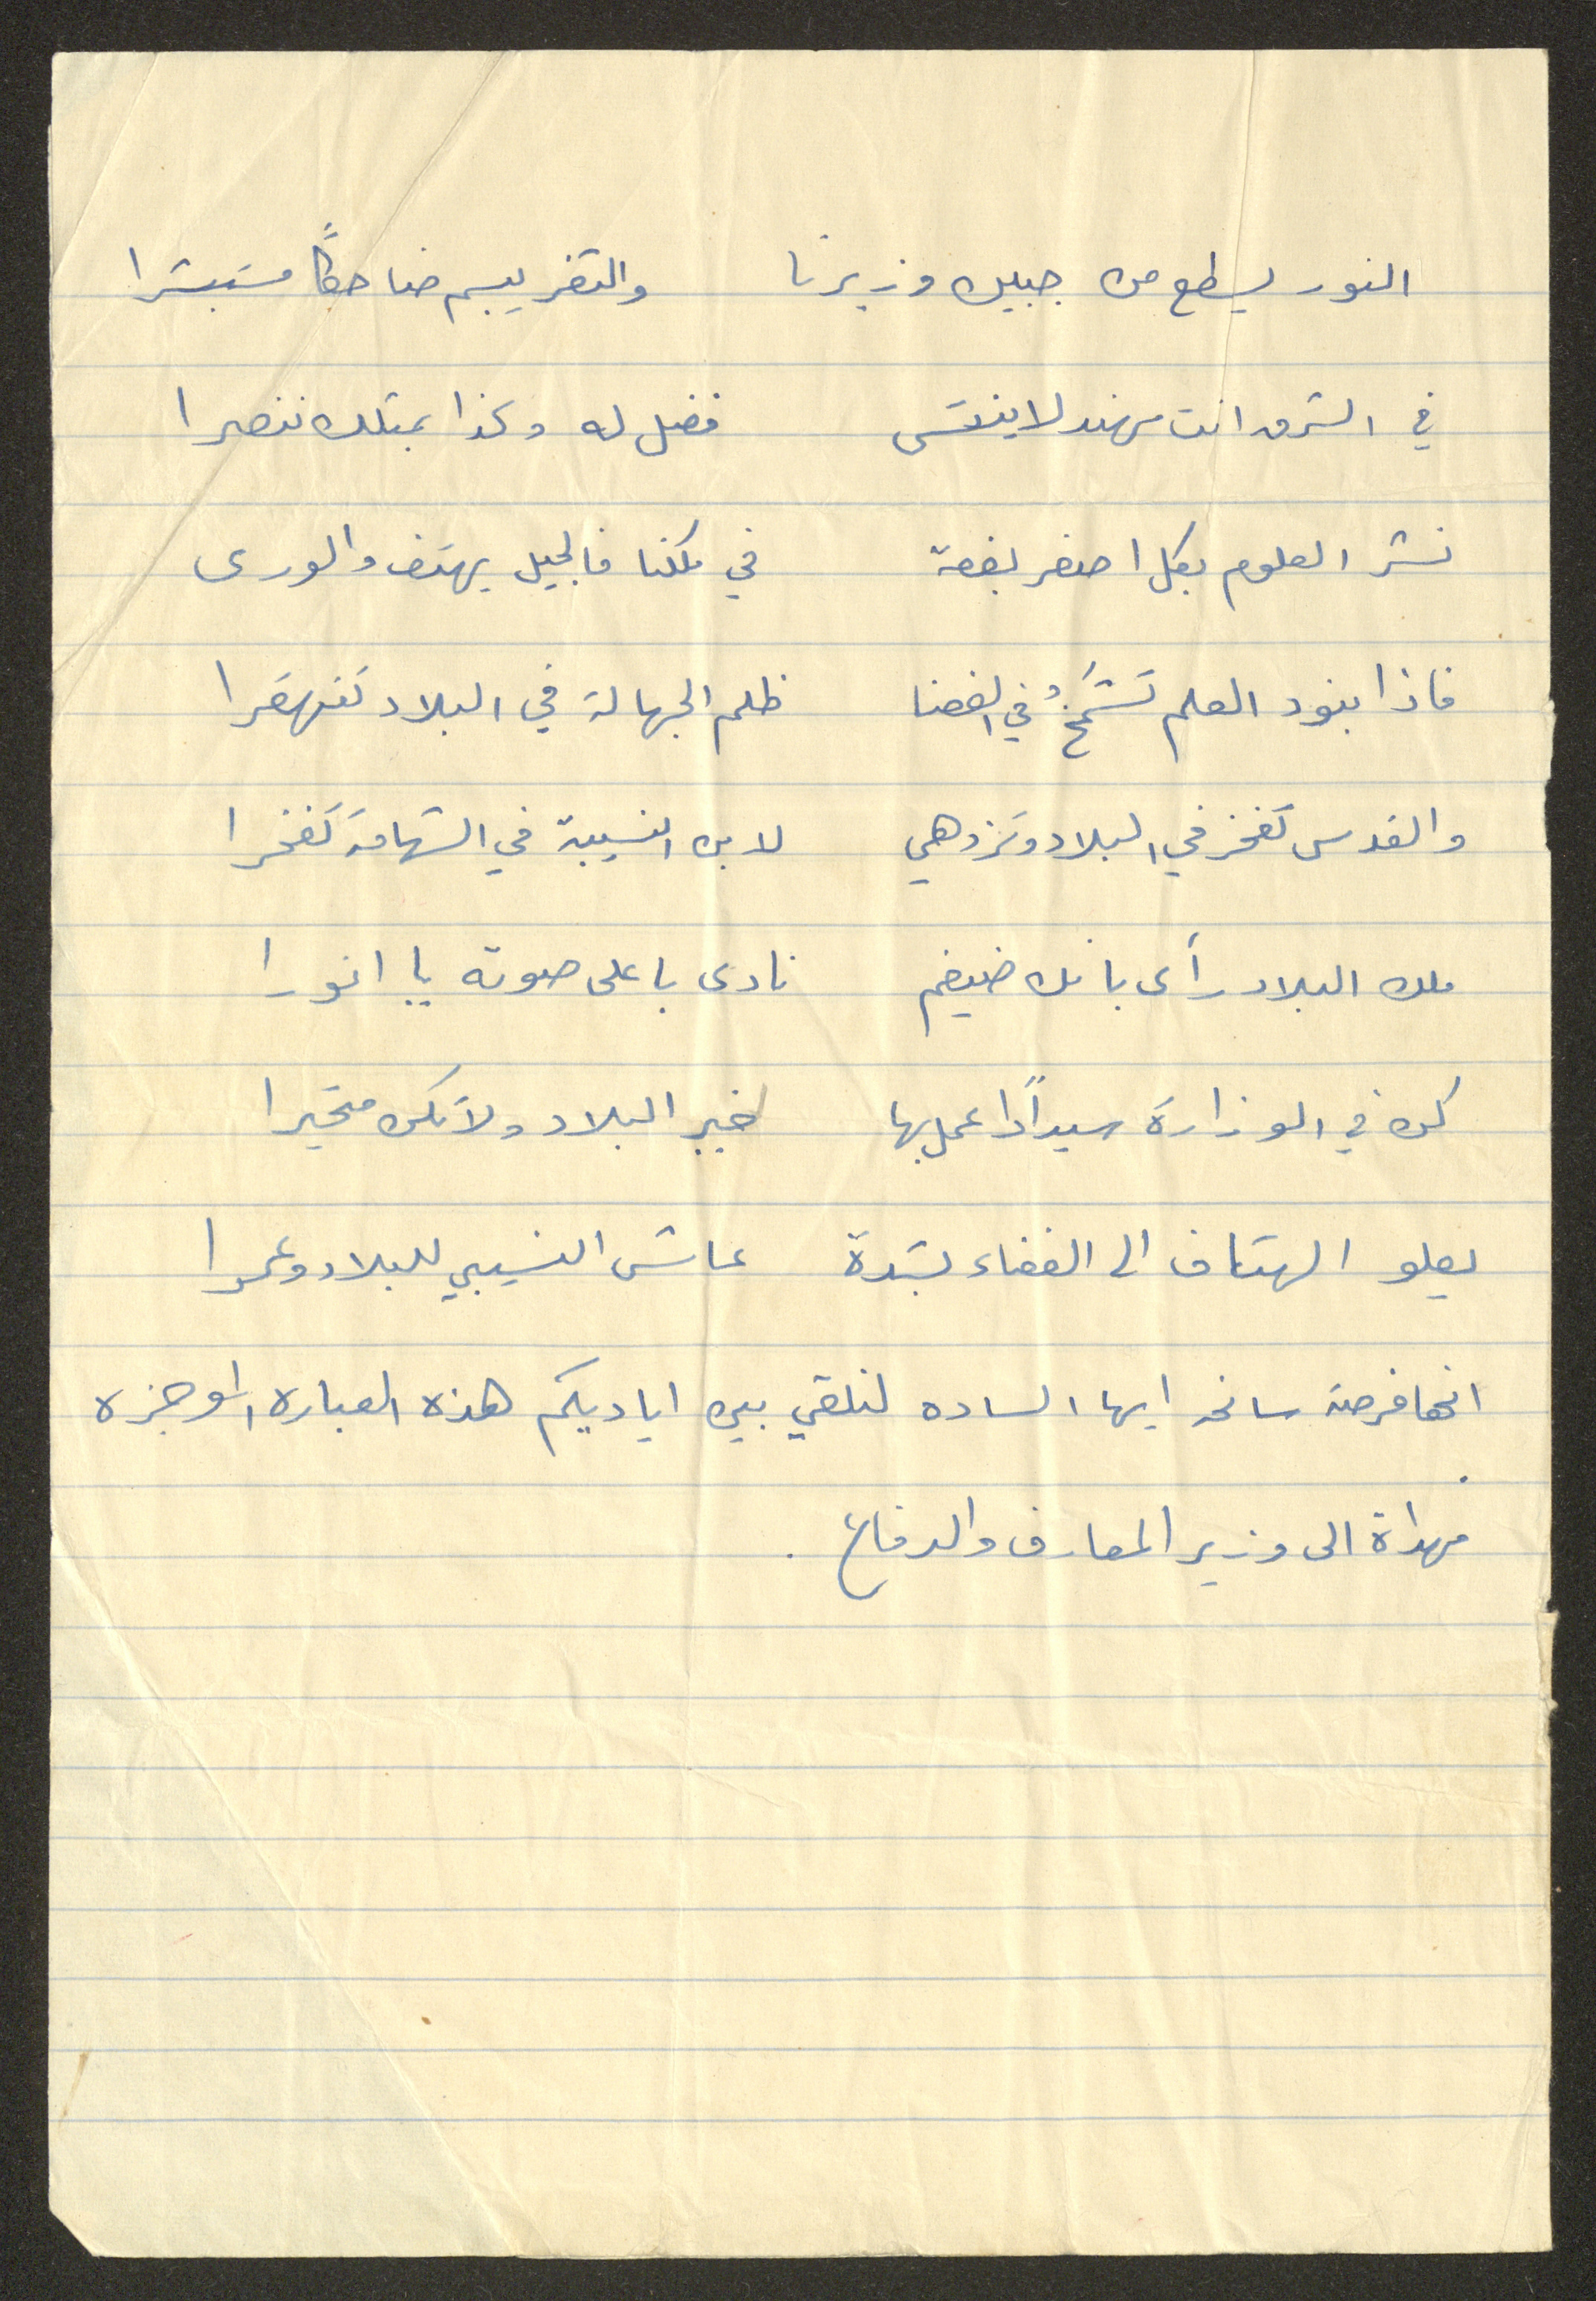 النور يسطع من جبين وزيرنا والثغر يبسم ضاحكاً مستبشرا
في الشرق انت مهند لا ينتسى فضل له وكذا بمثلك ننصرا
نشر العلوم بكل اصغر بقعة في ملكنا فالجيل يهتف والورى
فاذا بنود العلم تشمخُ في الفضا ظلم الجهالة في البلاد تقهقرا
والقدس تفخر في البلاد وتزدهي لابن النسيبة في الشهامة تفخرا
ملك البلاد رأى بانك ضيغم نادى باعلى صوته يا انورا
كن في الوزارة سيداً واعمل بها خير البلاد ولا تكن متحيرا
يعلو الهتاف الى الفضاء بشدة عاش النسيبي للبلاد وعمرا
انها فرصة سانحه ايها الساده لنلقي بين اياديكم هذه العباره الموجزه
مهداة الى وزير المعارف والدفاع .